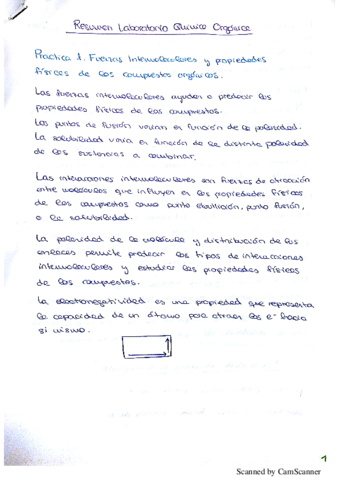 Resumen Laboratorio Química Orgánica
Práctica 1. Fuerzas Intermoleculares y propiedades
físicas de los compuestos orgánicos.
Las fuerzas intermoleculares ayudan a predecir las
propiedades físicas de los compuestos.
Los puntos de fusión varían en función de la polaridad.
La solubilidad varía en función de la distinta polaridad
de las sustancias a combinar.
Las interacciones intermoleculares son fuerzas de atracción
entre moléculas que influyen en las propiedades físicas
de los compuestos como punto ebullición, punto fusión,
o la solubilidad.
La polaridad de la molécula y distribución de los
enlaces permite predecir los tipos de interacciones
intermoleculares y estudiar las propiedades físicas
de los compuestos.
La electronegatividad es una propiedad que representa
la capacidad de un átomo para atraer los e⁻ hacia
si mismo.
1
Scanned by CamScanner